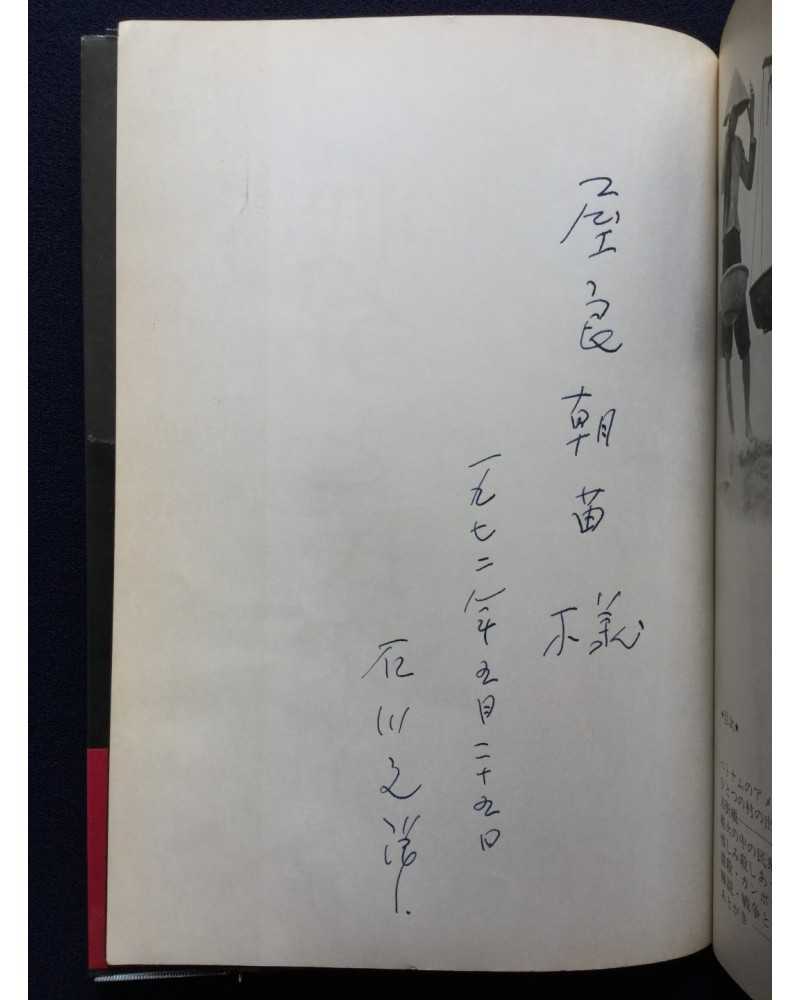 屋良朝苗様
一九七二年五月二十五日
石川文洋
*目次*
ベトナムのアメ
ひとつの村の